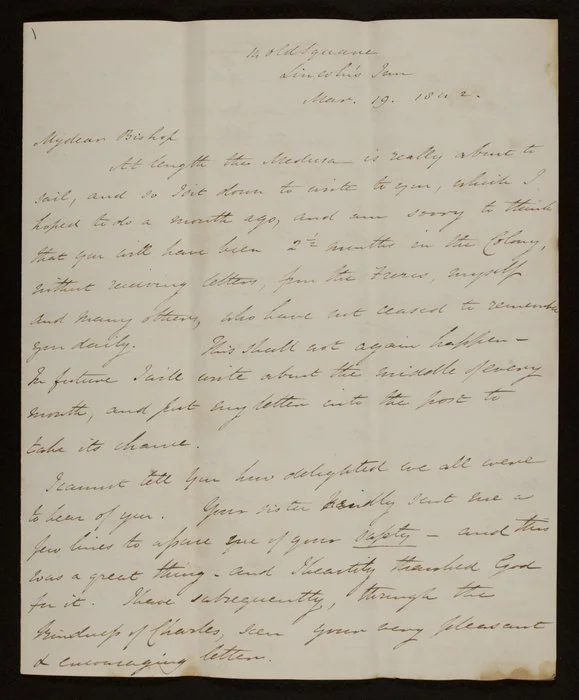 11 Old Square
Lincoln's Inn
Mar. 19. 1842.
My dear Bishop
At length the Medusa is really about to
sail, and so I sit down to write to you, which I
hoped to do a month ago, and am sorry to think
that you will have been 2½ months in the Colony,
without receiving letters, from the Freres, myself
and many others, who have not ceased to remember
you daily. This shall not again happen –
In future I will write about the middle of every
month, and put my letter into the post to
take its chance.
I cannot tell you how delighted we all were
to hear of you. Your sister kindly sent me a
few lines to assure me of your safety – and this
was a great thing – and I heartily thanked God
for it. I have subsequently, through the
kindness of Charles, seen your very pleasant
& encouraging letter.